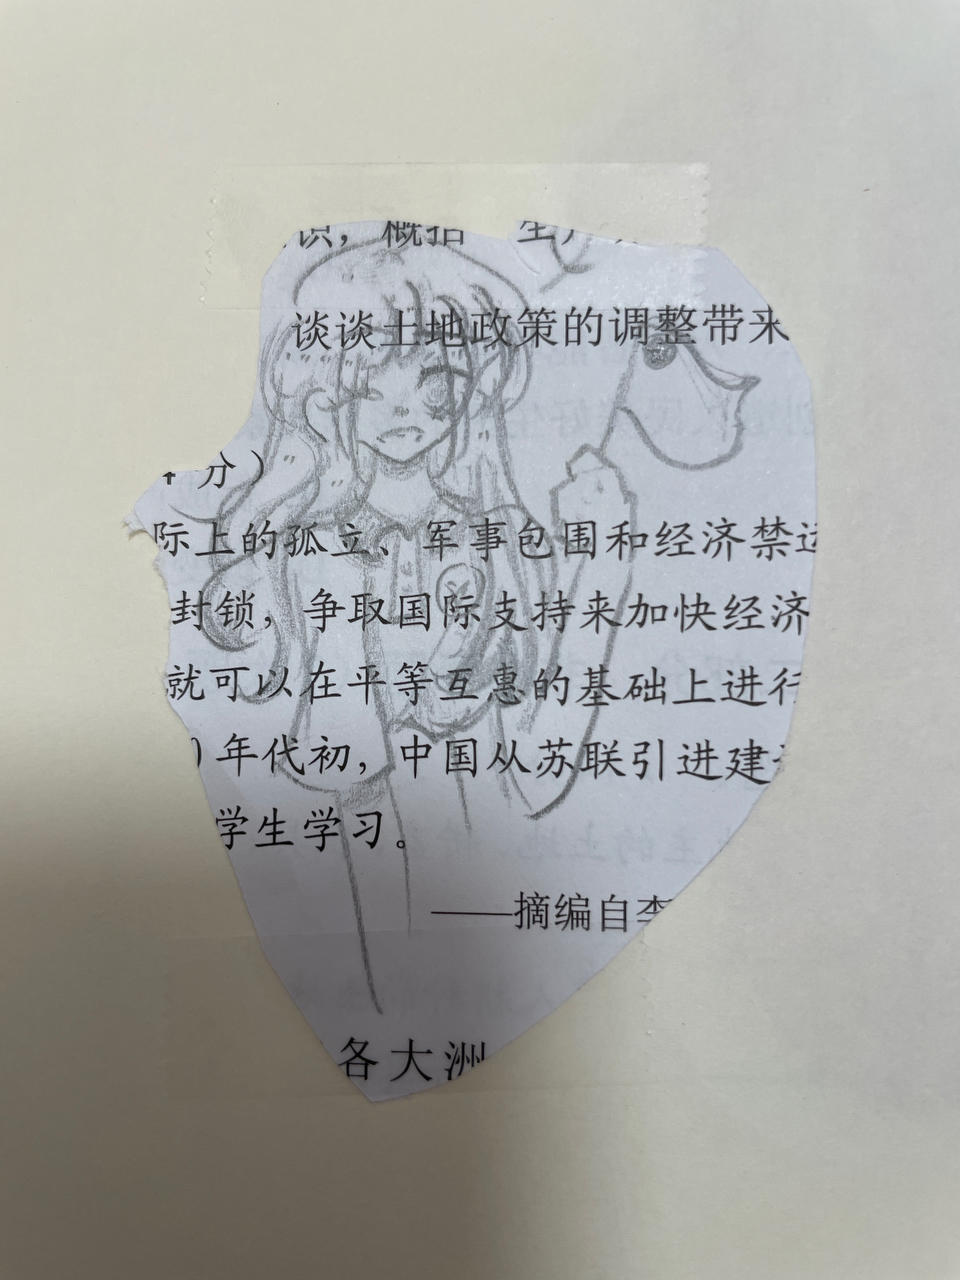 识，概括
谈谈土地政策的调整带来
分）
际上的孤立、军事包围和经济禁运
封锁，争取国际支持来加快经济
就可以在平等互惠的基础上进行
年代初，中国从苏联引进建
学生学习。
——摘编自李
各大洲